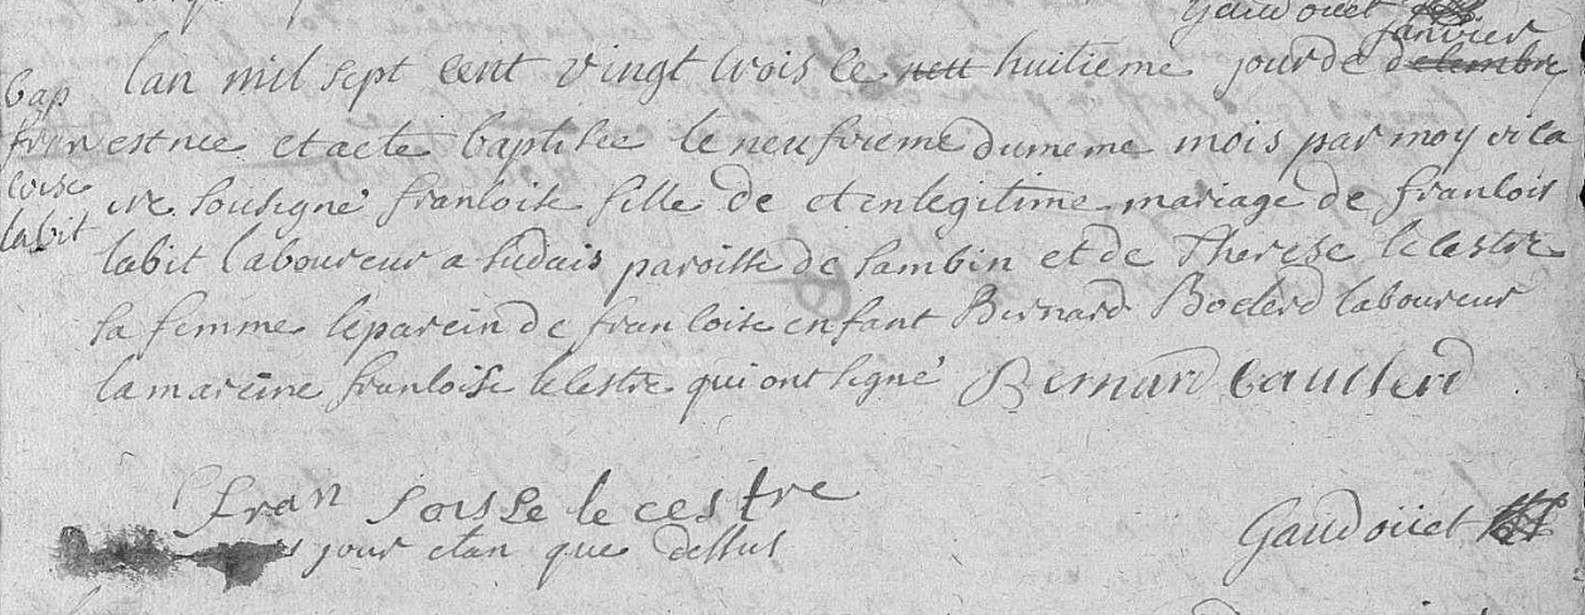 Gaudouet
janvier
lan mil sept cent vingt trois le neu huitieme jour de decembre
bap
fran
coise
labit
est nee et a ete baptisee le neufvieme du meme mois par moy vica
ire sousigné francoise fille de et en legitime mariage de francois
labit laboureur a sudais paroisse de sambin et de Therese lecestre
sa femme le parein de francoise enfant Bernard Boclerd laboureur
la mareine francoise lecestre qui ont signé Bernard bauclerd
fran soisse le cestre
jour et an que dessus
Gaudoüet